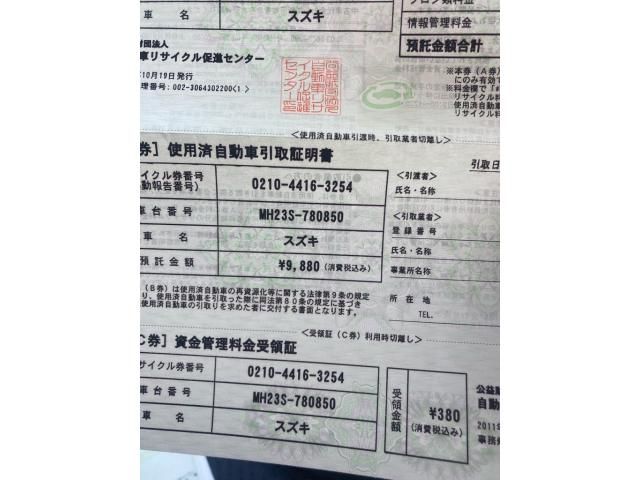 車 名 スズキ
フロン類料金
情報管理料金
預託金額合計
財団法人
車リサイクル促進センター
10月19日発行
理番号：002-3064302200<1>
※本券（A券）
にのみ有効で
※料金欄で「*
リサイクル料
使用済自動車
リサイクル料
<使用済自動車引渡時、引取業者切離し>
券］使用済自動車引取証明書
イクル券番号
動報告番号） 0210-4416-3254
車台番号 MH23S-780850
車 名 スズキ
預託金額 ¥9,880（消費税込み）
引取日
<引渡者>
氏名・名称
<引取業者>
登録番号
氏名・名称
事業所名称
所 在 地 〒
TEL.
（B券）は使用済自動車の再資源化等に関する法律第9条の規定
り、使用済自動車を引取った際に同法第80条の規定に基づき
使用済自動車の引取りを求めた者に交付する書面となります。
<受領証（C券）利用時切離し>
C券］資金管理料金受領証
サイクル券番号 0210-4416-3254
車台番号 MH23S-780850
車 名 スズキ
受領金額 ¥380
（消費税込み）
公益財
自動
2011年
事務